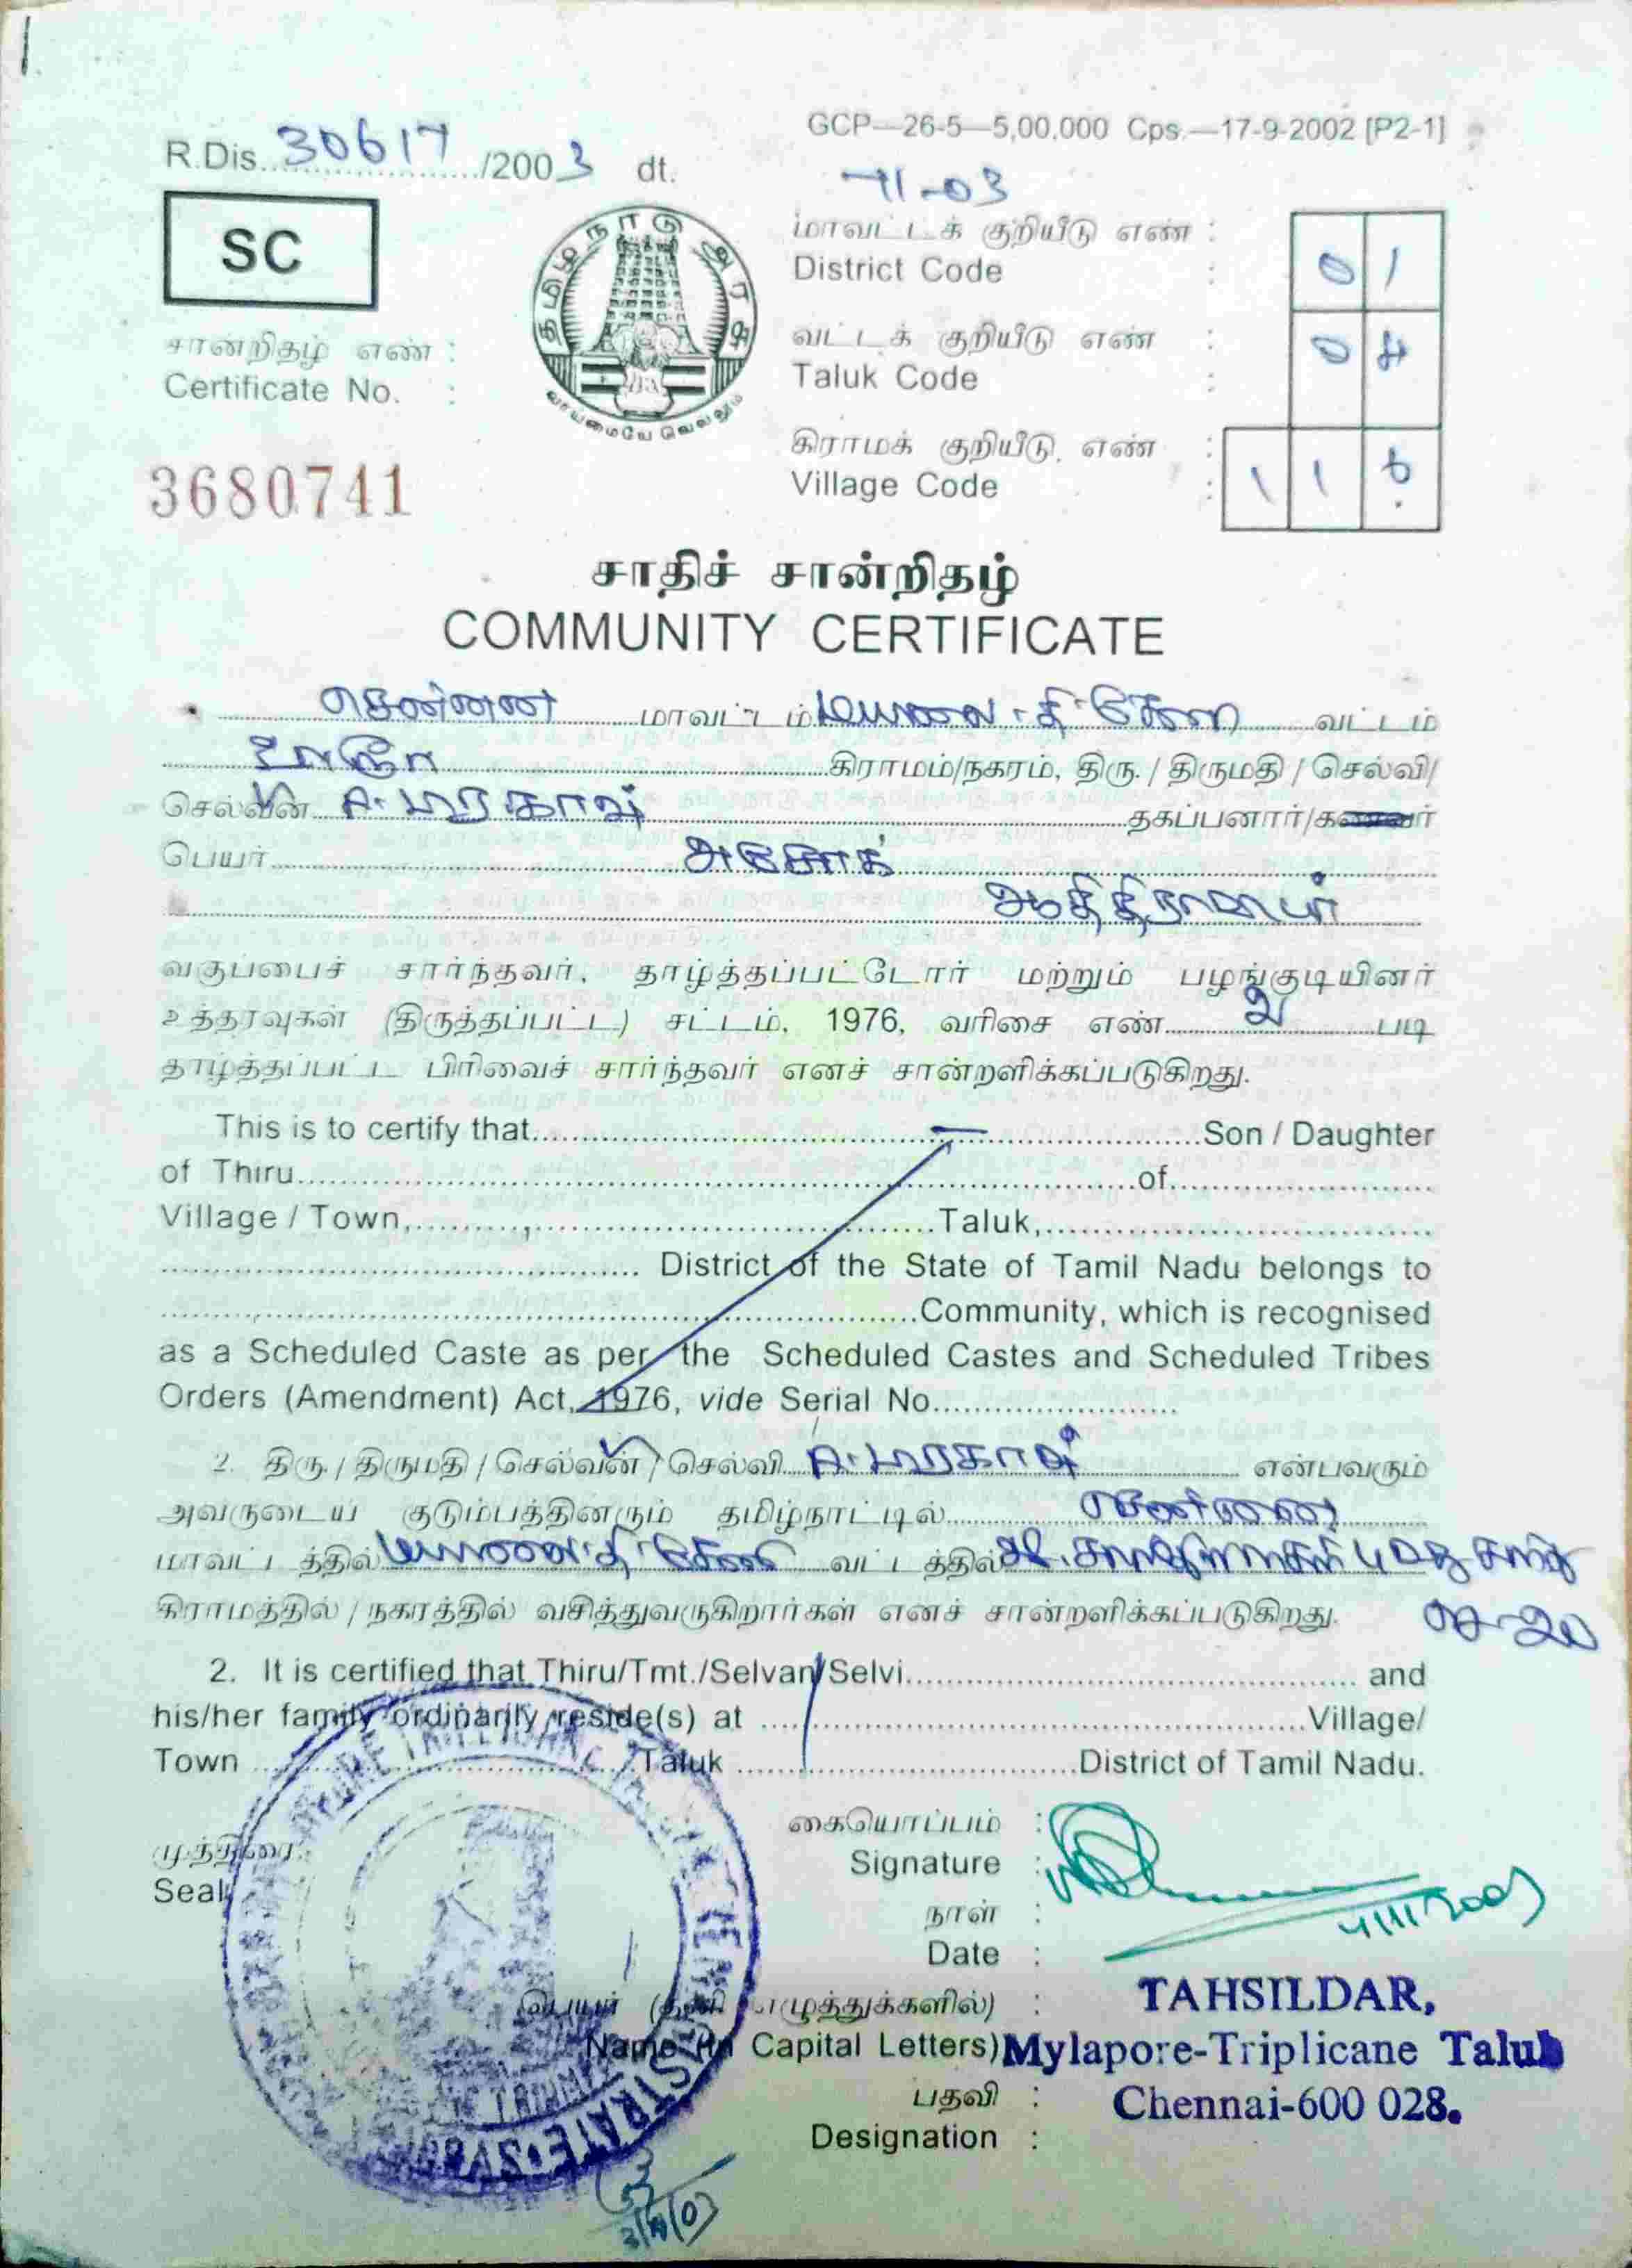 GCP—26-5—5,00,000 Cps.—17-9-2002 [P2-1]
R.Dis. 30617 /2003 dt. -11-03
SC
தமிழ்நாடு அரசு
வாய்மையே வெல்லும்
மாவட்டக் குறியீடு எண் :
District Code : 01
வட்டக் குறியீடு எண் :
Taluk Code : 04
கிராமக் குறியீடு எண் :
Village Code : 11
சான்றிதழ் எண் :
Certificate No. :
3680741
சாதிச் சான்றிதழ்
COMMUNITY CERTIFICATE
சென்னை மாவட்டம் மயிலை-தி-கேணி வட்டம்
கிராமம்/நகரம், திரு. / திருமதி / செல்வி/
செல்வன் A. தகப்பனார்/கணவர்
பெயர் அசோக்
ஆதிதிராவிடர்
வகுப்பைச் சார்ந்தவர். தாழ்த்தப்பட்டோர் மற்றும் பழங்குடியினர்
உத்தரவுகள் (திருத்தப்பட்ட) சட்டம், 1976, வரிசை எண் 2 படி
தாழ்த்தப்பட்ட பிரிவைச் சார்ந்தவர் எனச் சான்றளிக்கப்படுகிறது.
This is to certify that Son / Daughter
of Thiru of
Village / Town, Taluk,
District of the State of Tamil Nadu belongs to
Community, which is recognised
as a Scheduled Caste as per the Scheduled Castes and Scheduled Tribes
Orders (Amendment) Act, 1976, vide Serial No.
2. திரு. / திருமதி / செல்வன் / செல்வி A. என்பவரும்
அவருடைய குடும்பத்தினரும் தமிழ்நாட்டில் சென்னை
மாவட்டத்தில் மயிலை-தி-கேணி வட்டத்தில்
கிராமத்தில் / நகரத்தில் வசித்துவருகிறார்கள் எனச் சான்றளிக்கப்படுகிறது.
2. It is certified that Thiru/Tmt./Selvan/Selvi and
his/her family ordinarily reside(s) at Village/
Town Taluk District of Tamil Nadu.
முத்திரை
Seal
கையொப்பம் :
Signature :
4/11/2003
நாள் :
Date :
பெயர் (தனி எழுத்துக்களில்) :
Name (in Capital Letters)
பதவி :
Designation :
TAHSILDAR,
Mylapore-Triplicane Taluk
Chennai-600 028.